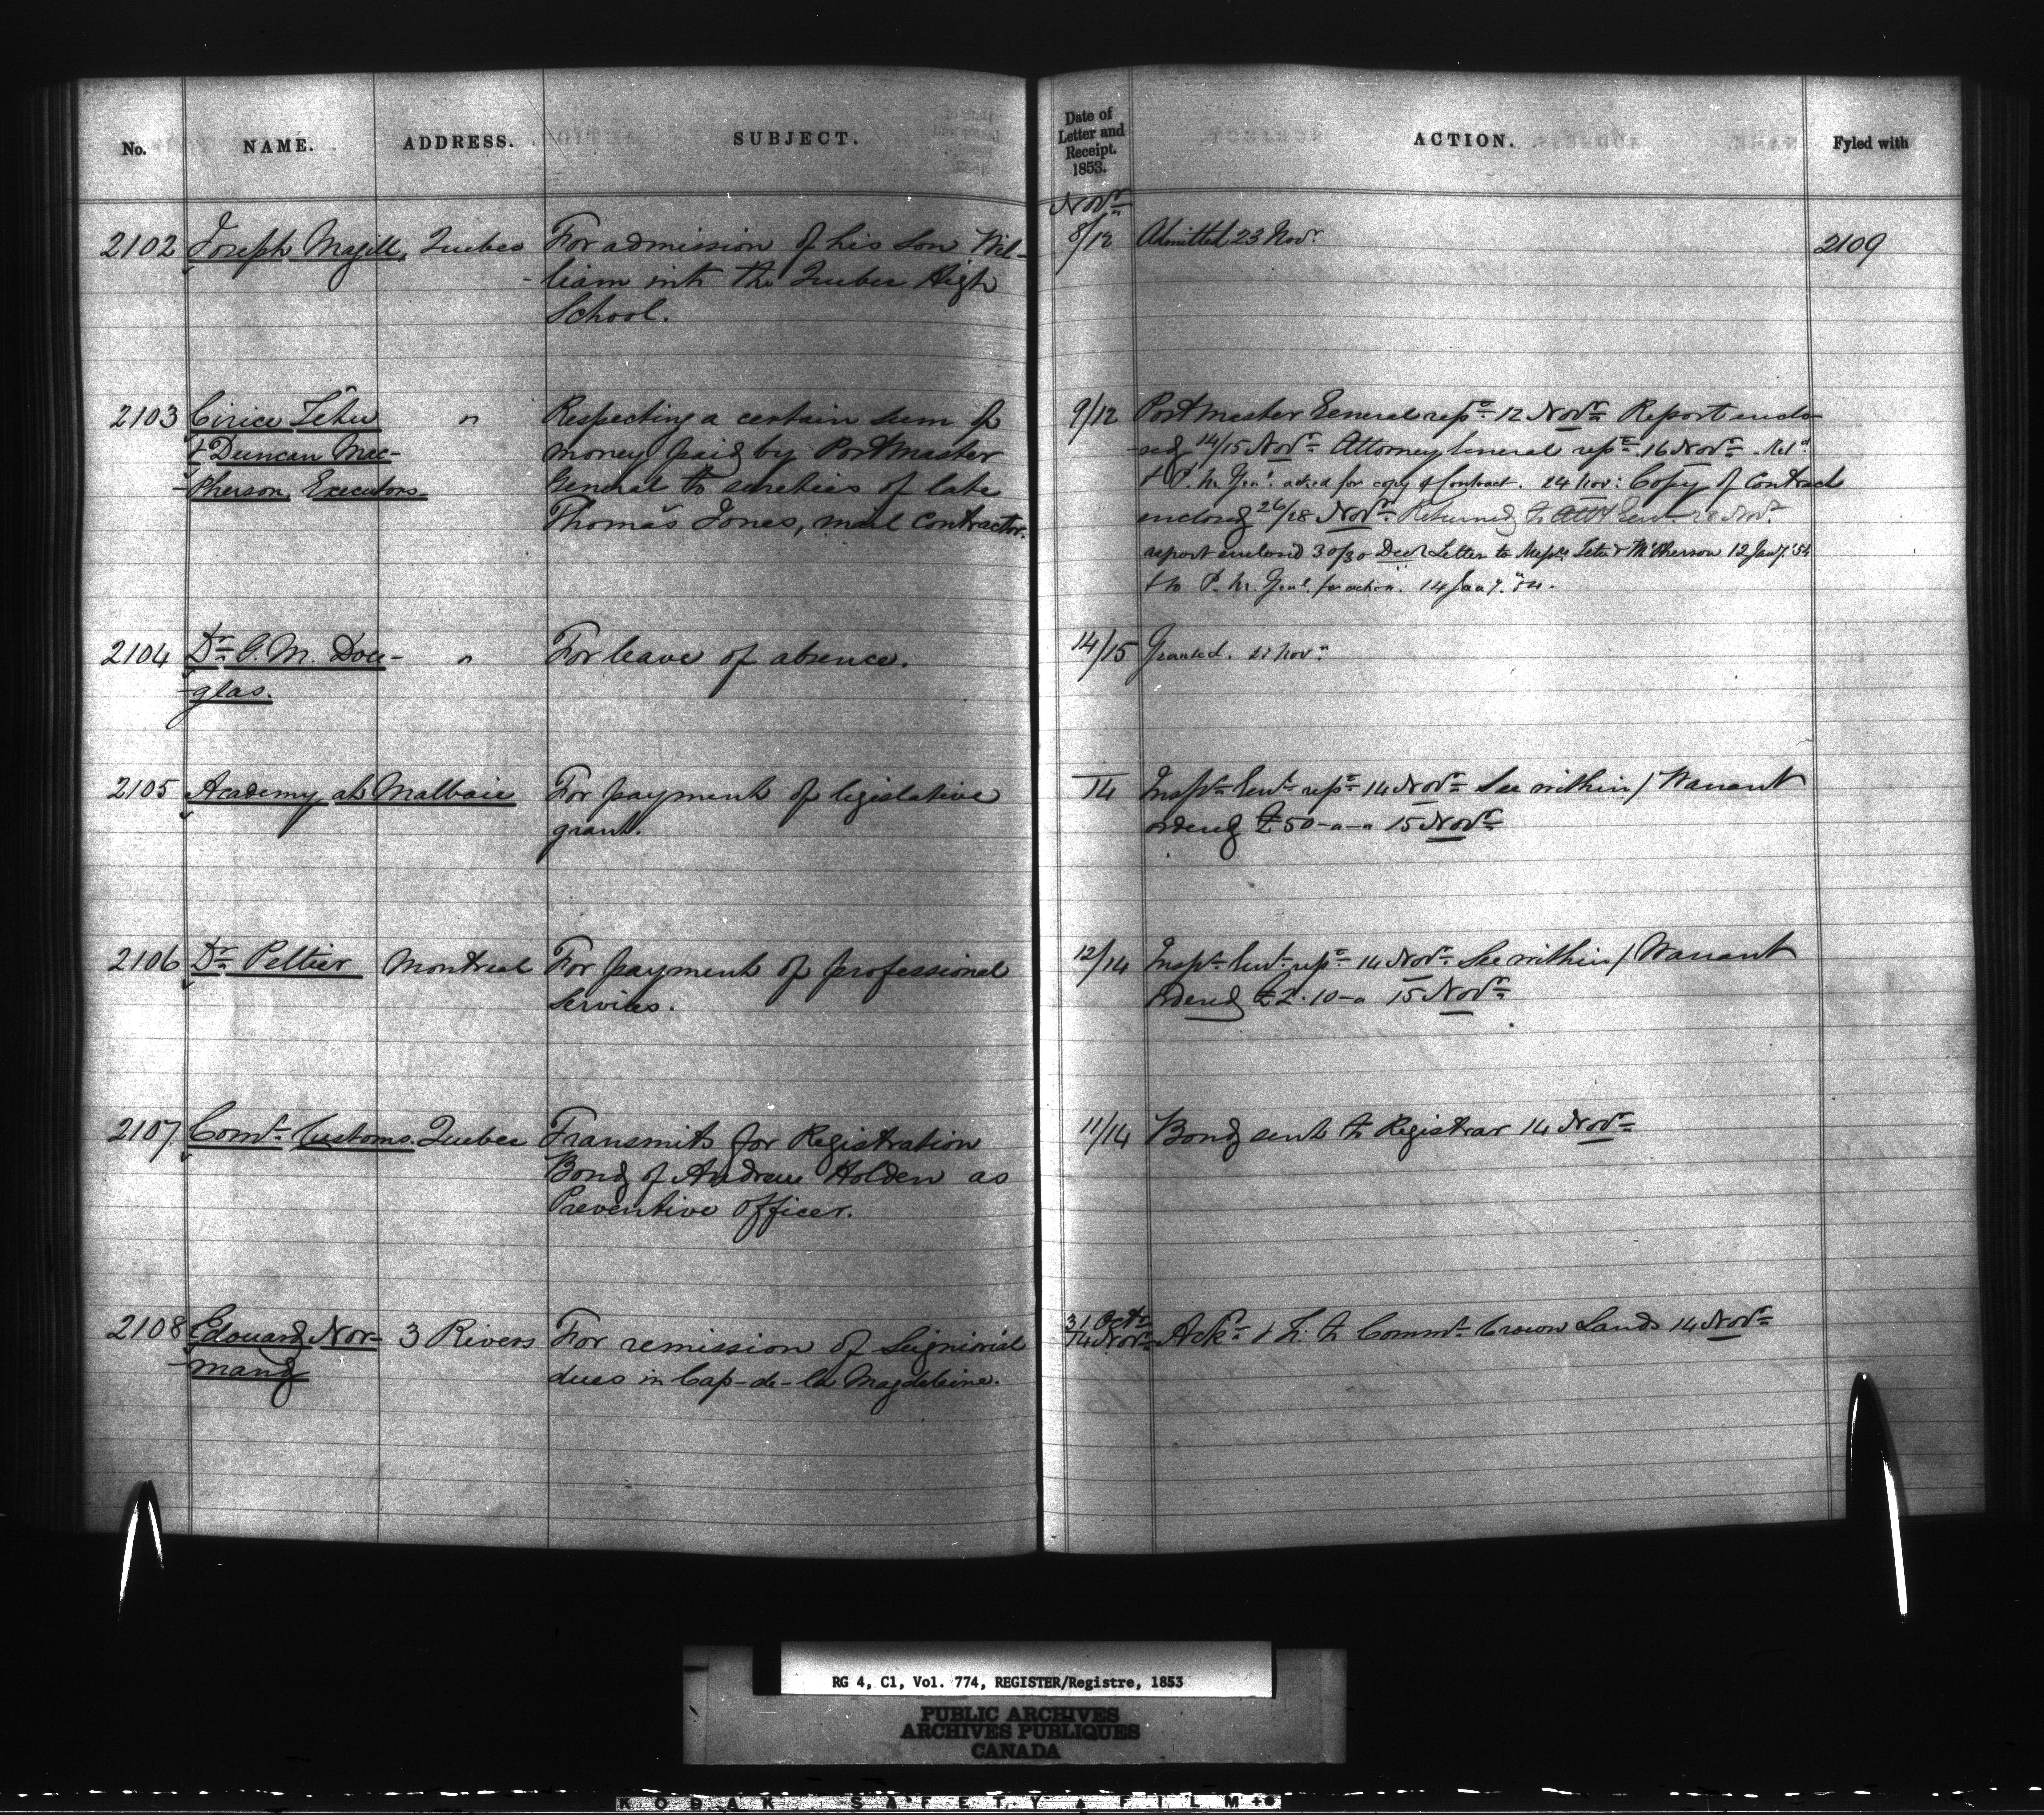 No. NAME. ADDRESS. SUBJECT.
Date of
Letter and
Receipt.
1853.
ACTION. Fyled with
Novr
2102 Joseph Magill, Quebec For admission of his son Wil-
liam into the Quebec High
School.
8/12 Admitted 23 Novr
2109
2103 Cirice Têtu " Respecting a certain sum of
& Duncan Mac- money paid by Post Master
-Pherson, Executors General to sureties of late
Thomas Jones, mail Contractor.
9/12 Post Master General repe 12 Novr Report enclo-
-sed 14/15 Novr Attorney General repe 16 Novr
& P. M. Genl asked for copy of Contract. 24 Nov: Copy of Contract
enclosed 26/28 Novr Returned to Atty Genl 28 Novr
report enclosed 30/30 Decr Letter to Messrs Tetu & McPherson 12 Jany '54
& to P. M. Genl for action. 14 Jany. '54.
2104 Dr G. M. Dou- " For leave of absence.
-glas.
14/15 Granted. Novr
2105 Academy at Malbaie For payment of legislative
grant.
14 Inspr Genl repe 14 Novr See within / Warrant
ordered £50-"-" 15 Novr
2106 Dr Peltier Montreal For payment of professional
services.
12/14 Inspr Genl repe 14 Novr See within / Warrant
ordered £2.10-" 15 Novr
2107 Comr Customs. Quebec Transmits for Registration
Bond of Andrew Holden as
Preventive Officer.
11/14 Bond sent to Registrar 14 Novr
2108 Edouard Nor- 3 Rivers For remission of Seigniorial
-mand dues in Cap-de-la Magdeleine.
31 Octr
14 Novr Ackd & to Commr Crown Lands 14 Novr
RG 4, C1, Vol. 774, REGISTER/Registre, 1853
PUBLIC ARCHIVES
ARCHIVES PUBLIQUES
CANADA
KODAK SAFETY FILM